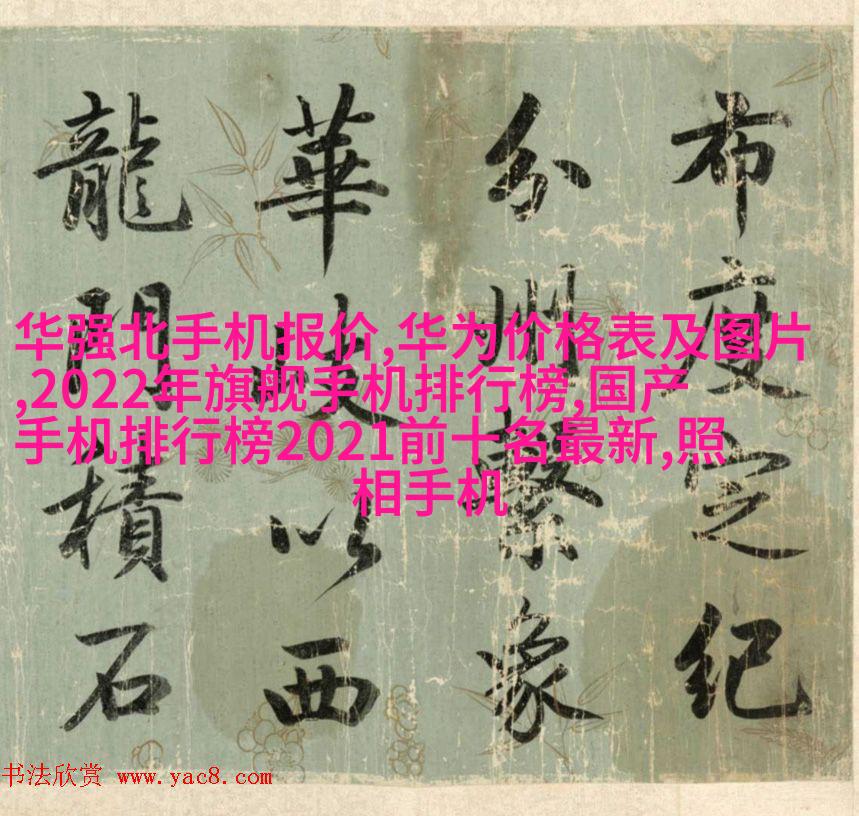 布度定紀
分州繫象
華岐以西
龍門積石
华强北手机报价,华为价格表及图片
,2022年旗舰手机排行榜,国产
手机排行榜2021前十名最新,照
相手机
书法欣赏 www.yac8.com